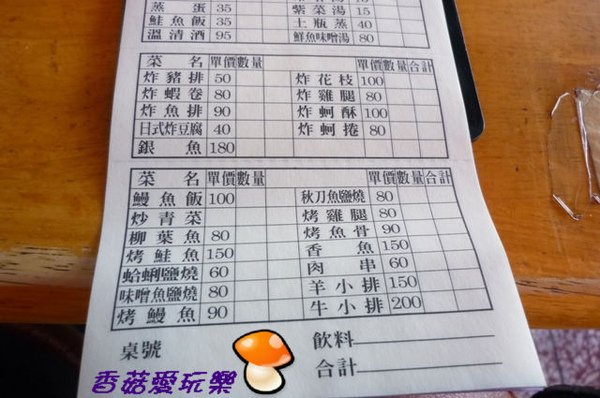 蒸蛋 35 紫菜湯 15
鮭魚飯 35 土瓶蒸 40
溫清酒 95 鮮魚味噌湯 80
菜名 單價 數量 單價 數量 合計
炸豬排 50 炸花枝 100
炸蝦卷 80 炸雞腿 80
炸魚排 90 炸蚵酥 100
日式炸豆腐 40 炸蚵捲 80
銀魚 180
菜名 單價 數量 單價 數量 合計
鰻魚飯 100 秋刀魚鹽燒 80
炒青菜 烤雞腿 80
柳葉魚 80 烤魚骨 90
烤鮭魚 150 香魚 150
蛤蜊鹽燒 60 肉串 60
味噌魚鹽燒 80 羊小排 150
烤鰻魚 90 牛小排 200
桌號 飲料
合計
香菇愛玩樂